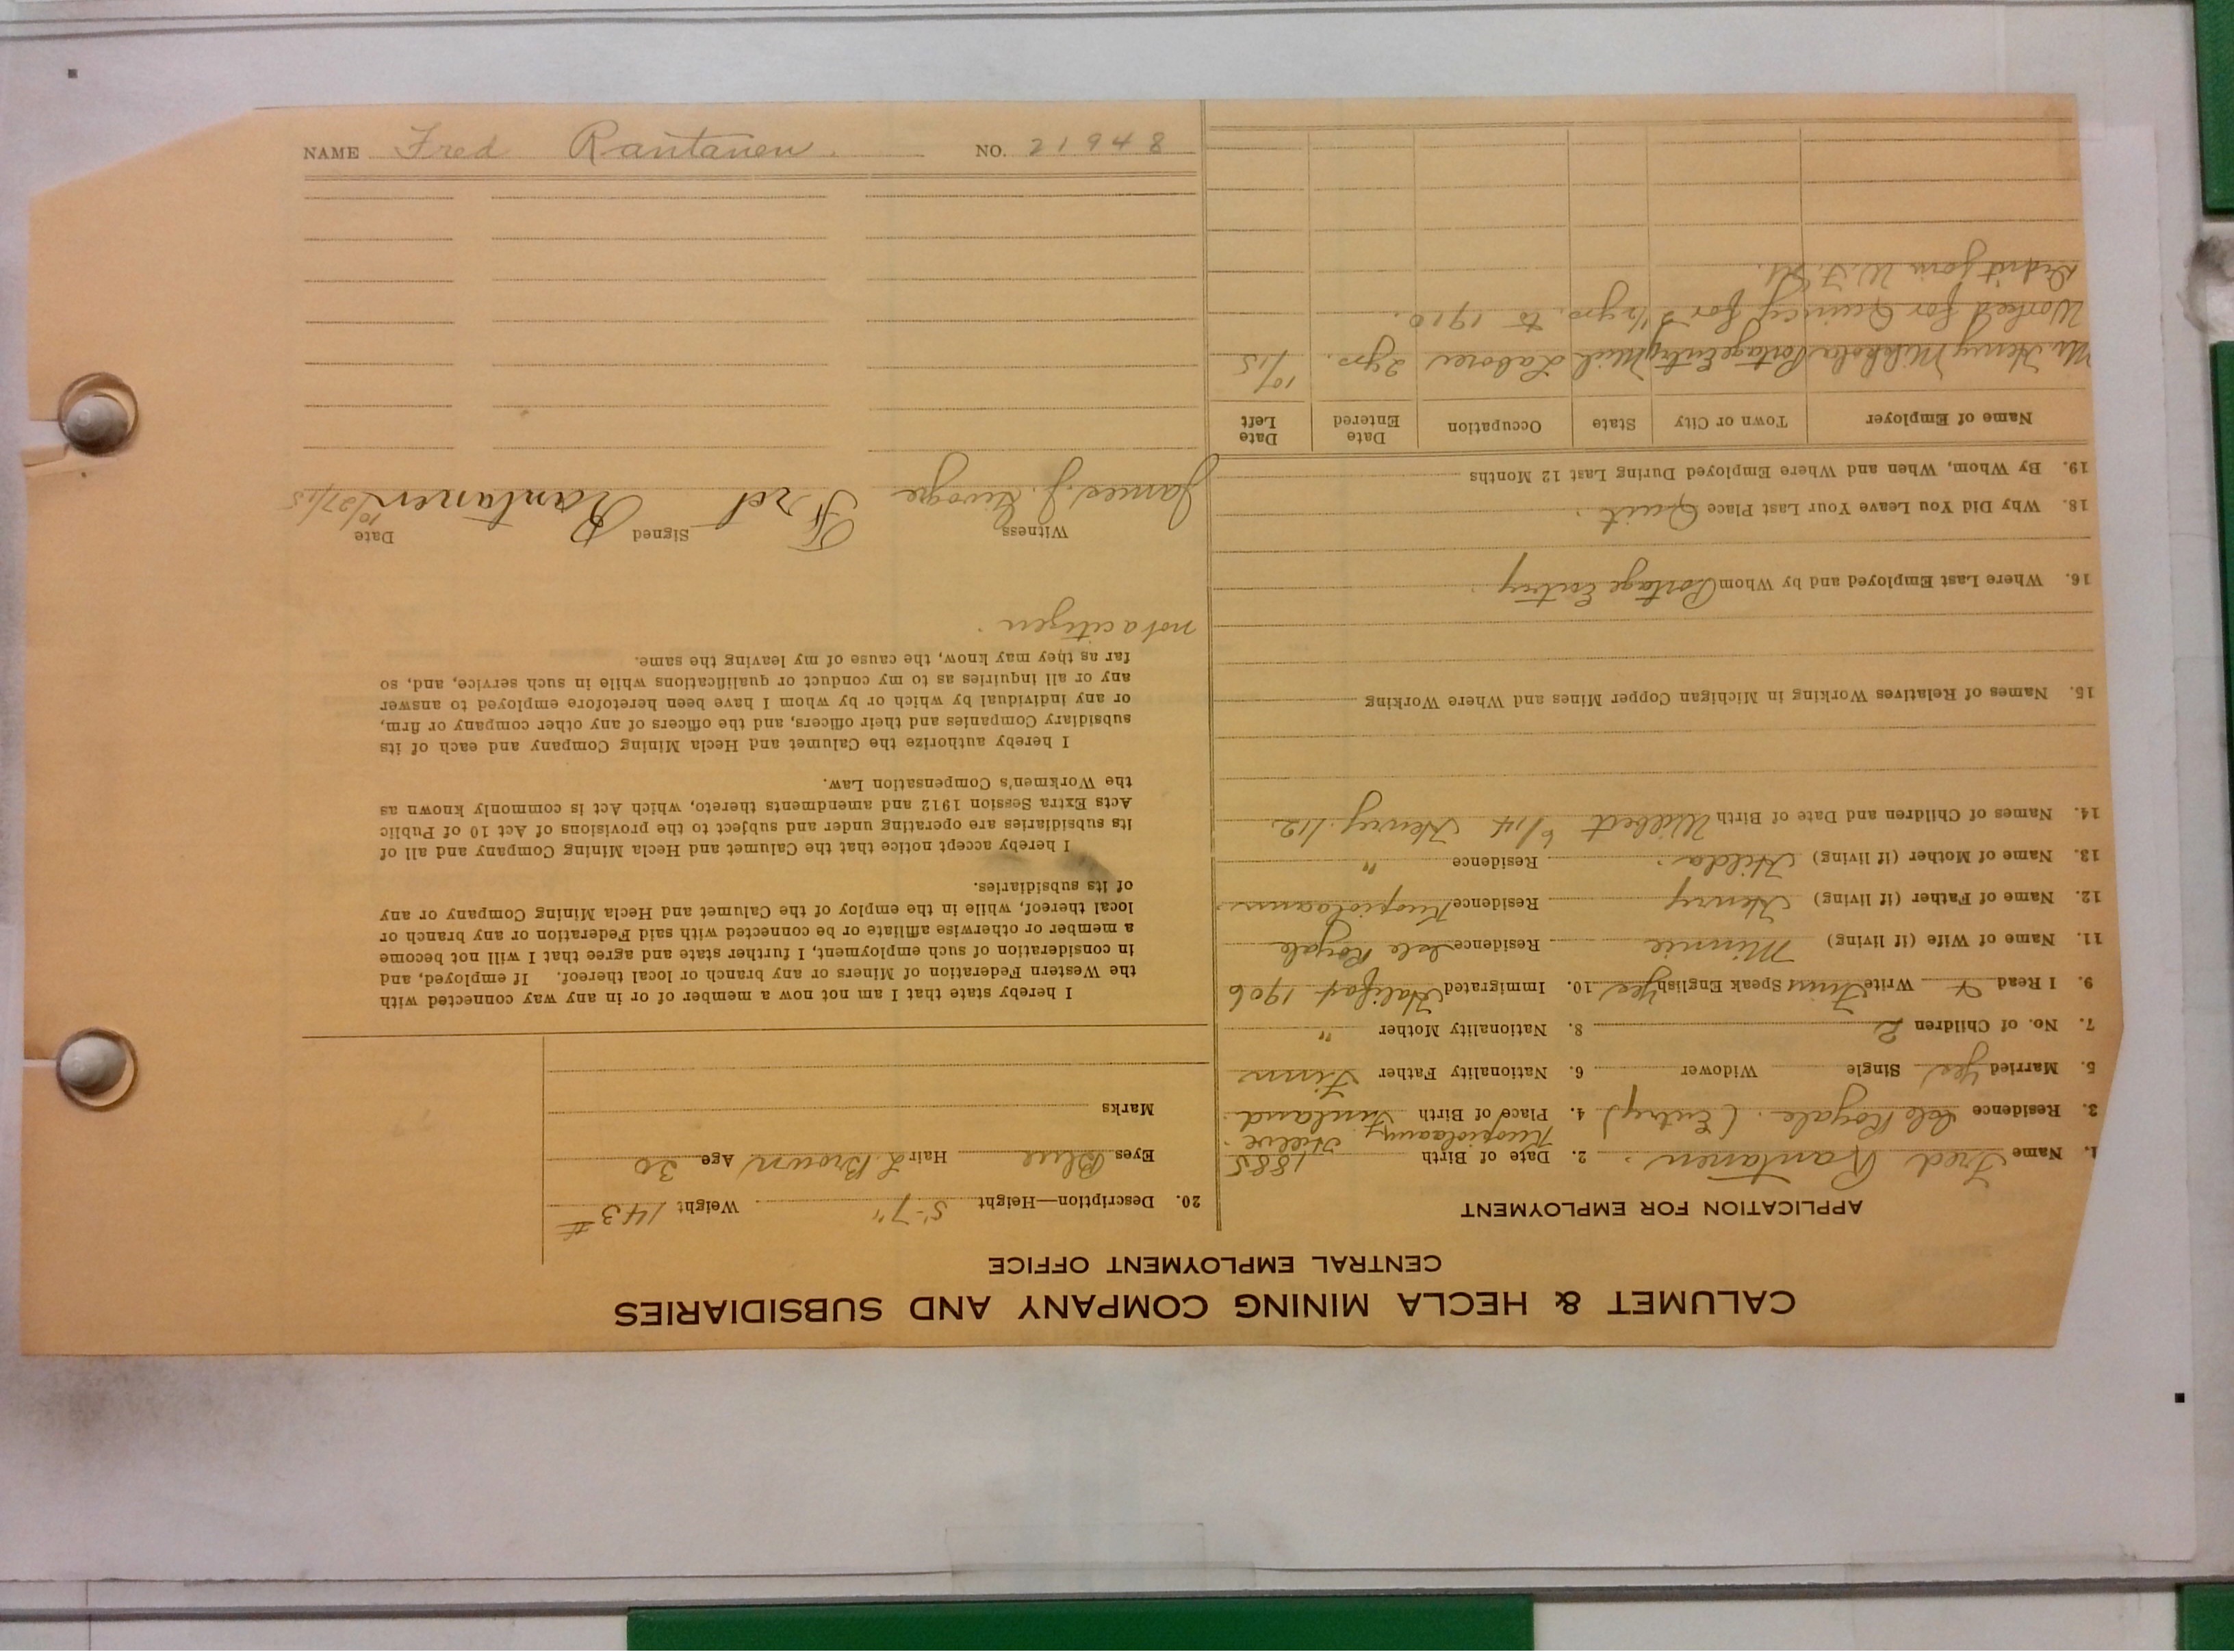 CALUMET & HECLA MINING COMPANY AND SUBSIDIARIES
CENTRAL EMPLOYMENT OFFICE
APPLICATION FOR EMPLOYMENT
1. Name Fred Rantanen. 2. Date of Birth 1885
Kuopiolaany,
3. Residence Isle Royale. (Entry) 4. Place of Birth Finland
5. Married Yes Single Widower 6. Nationality Father Finn
7. No. of Children 2 8. Nationality Mother "
9. I Read & Write Finn Speak English Yes 10. Immigrated Halifax 1906
11. Name of Wife (if living) Minnie Residence Isle Royale
12. Name of Father (if living) Henry Residence Kuopiolaani.
13. Name of Mother (if living) Hilda. Residence "
14. Names of Children and Date of Birth Wilbert 6/14 Henry. 1/12.
15. Names of Relatives Working in Michigan Copper Mines and Where Working
16. Where Last Employed and by Whom Portage Entry
18. Why Did You Leave Your Last Place Quit.
19. By Whom, When and Where Employed During Last 12 Months
Name of Employer Town or City State Occupation Date Entered Date Left
Mr. Henry Mikkola Portage Entry Mich Laborer 2 yrs. 10/15
Worked for Quincy for 3 1/2 yrs. to 1910.
Didn't join W.F.M.
20. Description—Height 5'-7" Weight 143#
Eyes Blue Hair L. Brown Age 30
Marks
I hereby state that I am not now a member of or in any way connected with
the Western Federation of Miners or any branch or local thereof. If employed, and
in consideration of such employment, I further state and agree that I will not become
a member or otherwise affiliate or be connected with said Federation or any branch or
local thereof, while in the employ of the Calumet and Hecla Mining Company or any
of its subsidiaries.
I hereby accept notice that the Calumet and Hecla Mining Company and all of
its subsidiaries are operating under and subject to the provisions of Act 10 of Public
Acts Extra Session 1912 and amendments thereto, which Act is commonly known as
the Workmen's Compensation Law.
I hereby authorize the Calumet and Hecla Mining Company and each of its
subsidiary Companies and their officers, and the officers of any other company or firm,
or any individual by which or by whom I have been heretofore employed to answer
any or all inquiries as to my conduct or qualifications while in such service, and, so
far as they may know, the cause of my leaving the same.
not a citizen.
Witness Signed Date
James J. Fred Rantanen 10/27/15
NAME Fred Rantanen. NO. 21948